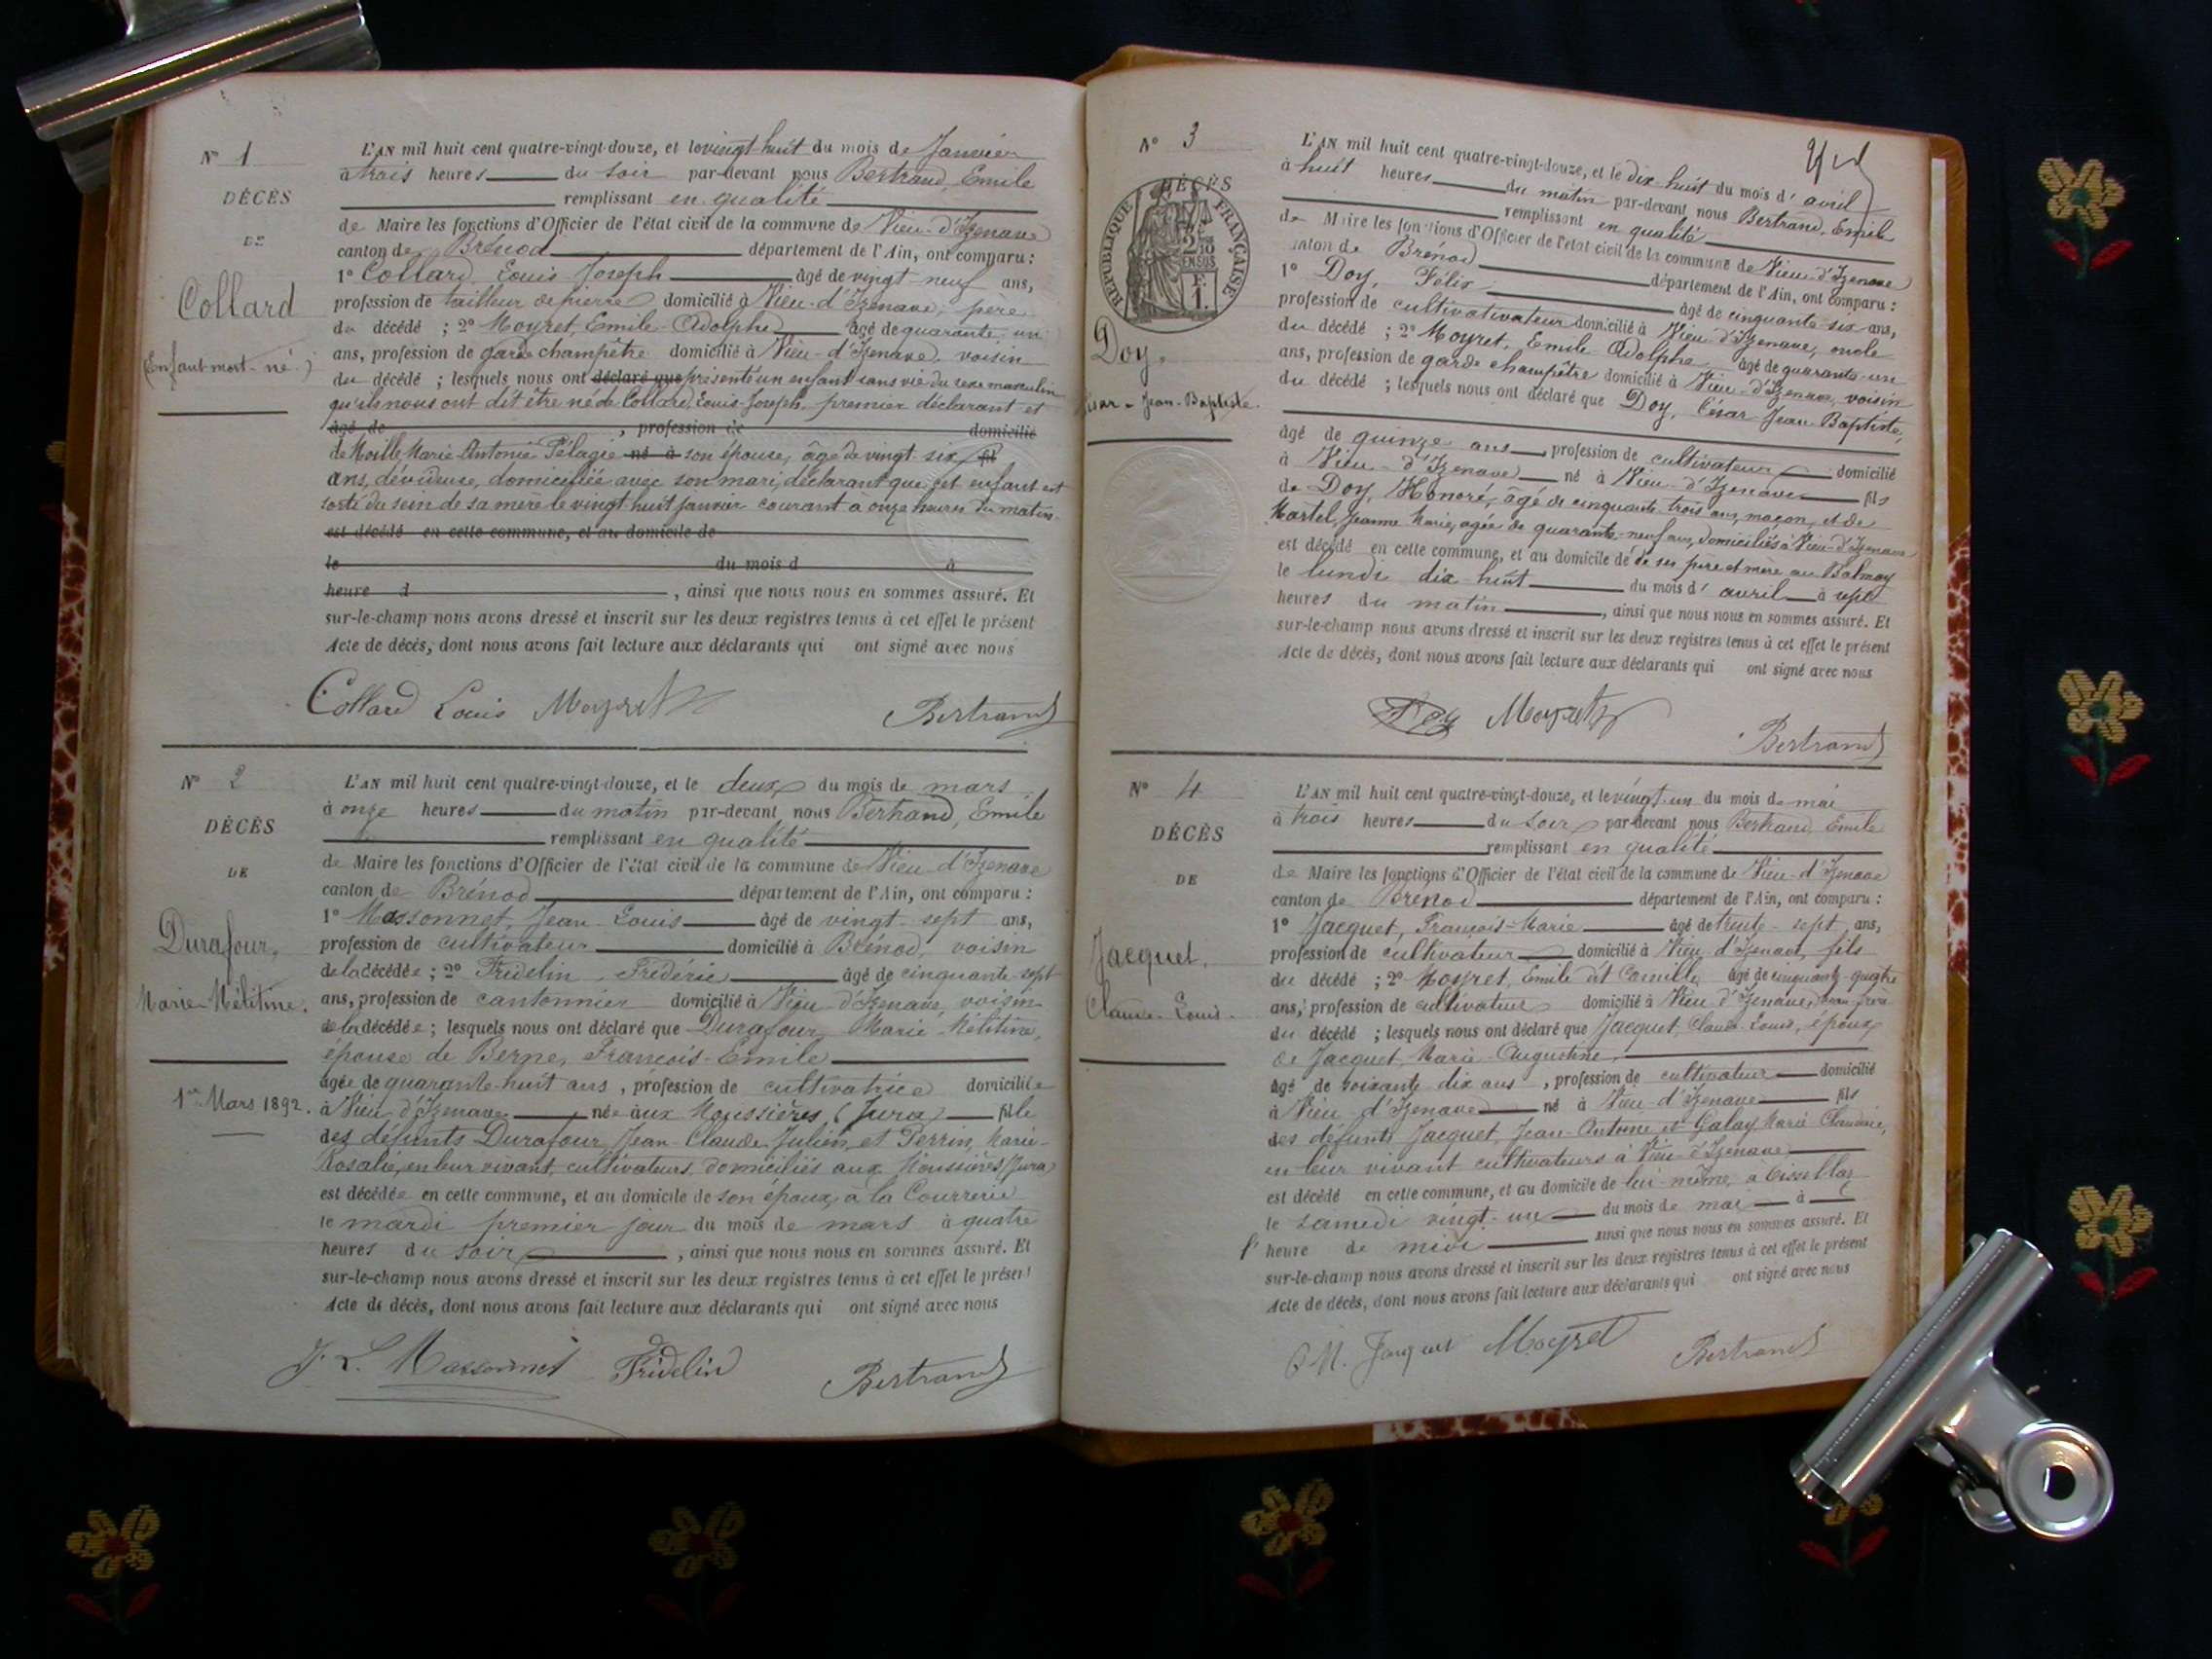 N° 1
DÉCÈS
DE
Collard
(Enfant mort-né.)
L'AN mil huit cent quatre-vingt-douze, et le vingt huit du mois de Janvier
à trois heures du soir par-devant nous Bertrand, Emile
remplissant en qualité
de Maire les fonctions d'Officier de l'état civil de la commune de Vieu-d'Izenave
canton de Brénod département de l'Ain, ont comparu :
1° Collard, Louis Joseph âgé de vingt-neuf ans,
profession de tailleur de pierre domicilié à Vieu-d'Izenave, père
du décédé ; 2° Moyret, Emile-Adolphe âgé de quarante-un
ans, profession de garde champêtre domicilié à Vieu-d'Izenave, voisin
du décédé ; lesquels nous ont déclaré que présenté un enfant sans vie du sexe masculin
qu'ils nous ont dit être né de Collard, Louis-Joseph, premier déclarant et
âgé de , profession de domicilié
de Marie Antonie Pélagie né à son épouse, âgée de vingt-six fil
ans, dévideuse, domiciliée avec son mari, déclarant que cet enfant est
sorti du sein de sa mère le vingt huit janvier courant à onze heures du matin.
est décédé en cette commune, et au domicile de
le du mois d à
heure d , ainsi que nous nous en sommes assuré. Et
sur-le-champ nous avons dressé et inscrit sur les deux registres tenus à cet effet le présent
Acte de décès, dont nous avons fait lecture aux déclarants qui ont signé avec nous
Collard Louis Moyret Bertrand
N° 2
DÉCÈS
DE
Durafour,
Marie-Mélitine.
1er Mars 1892.
L'AN mil huit cent quatre-vingt-douze, et le deux du mois de mars
à onze heures du matin par-devant nous Bertrand, Emile
remplissant en qualité
de Maire les fonctions d'Officier de l'état civil de la commune de Vieu-d'Izenave
canton de Brénod département de l'Ain, ont comparu :
1° Massonnet, Jean-Louis âgé de vingt-sept ans,
profession de cultivateur domicilié à Brénod, voisin
de la décédée ; 2° Fridelin, Frédéric âgé de cinquante-sept
ans, profession de cantonnier domicilié à Vieu-d'Izenave, voisin
de la décédée ; lesquels nous ont déclaré que Durafour, Marie Mélitine,
épouse de Berne, François-Emile
âgée de quarante-huit ans, profession de cultivatrice domiciliée
à Vieu d'Izenave née aux Moussières (Jura) fille
des défunts Durafour, Jean-Claude Julien, et Perrin, Marie-
Rosalie, en leur vivant cultivateurs, domiciliés aux Moussières (Jura)
est décédée en cette commune, et au domicile de son époux, à la Courrerie
le mardi premier jour du mois de mars à quatre
heures du soir , ainsi que nous nous en sommes assuré. Et
sur-le-champ nous avons dressé et inscrit sur les deux registres tenus à cet effet le présent
Acte de décès, dont nous avons fait lecture aux déclarants qui ont signé avec nous
J. L. Massonnet Fridelin Bertrand
N° 3
DÉCÈS
RÉPUBLIQUE FRANÇAISE
Doy.
César-Jean-Baptiste.
L'AN mil huit cent quatre-vingt-douze, et le dix-huit du mois d'avril
à huit heures du matin par-devant nous Bertrand, Emile
remplissant en qualité
de Maire les fonctions d'Officier de l'état civil de la commune de Vieu-d'Izenave
canton de Brénod département de l'Ain, ont comparu :
1° Doy, Félix âgé de cinquante-six ans,
profession de cultivativateur domicilié à Vieu-d'Izenave, oncle
du décédé ; 2° Moyret, Emile Adolphe âgé de quarante-un
ans, profession de garde champêtre domicilié à Vieu-d'Izenave, voisin
du décédé ; lesquels nous ont déclaré que Doy, César Jean Baptiste,
âgé de quinze ans, profession de cultivateur domicilié
à Vieu-d'Izenave né à Vieu-d'Izenave fils
de Doy, Honoré, âgé de cinquante trois ans, maçon, et de
Martel, Jeanne Marie, agée de quarante-neuf ans, domiciliés à Vieu-d'Izenave
est décédé en cette commune, et au domicile de de ses père et mère au Balmay
le lundi dix-huit du mois d'avril à sept
heures du matin , ainsi que nous nous en sommes assuré. Et
sur-le-champ nous avons dressé et inscrit sur les deux registres tenus à cet effet le présent
Acte de décès, dont nous avons fait lecture aux déclarants qui ont signé avec nous
Doy Moyret Bertrand
N° 4
DÉCÈS
DE
Jacquet.
Claude-Louis.
L'AN mil huit cent quatre-vingt-douze, et le vingt-un du mois de mai
à trois heures du soir par-devant nous Bertrand, Emile
remplissant en qualité
de Maire les fonctions d'Officier de l'état civil de la commune de Vieu-d'Izenave
canton de Brénod département de l'Ain, ont comparu :
1° Jacquet, François-Marie âgé de trente-sept ans,
profession de cultivateur domicilié à Vieu-d'Izenave, fils
du décédé ; 2° Moyret, Emile dit Camille, âgé de cinquante-quatre
ans, profession de cultivateur domicilié à Vieu d'Izenave, beau-frère
du décédé ; lesquels nous ont déclaré que Jacquet, Claude-Louis, époux
de Jacquet, Marie-Augustine,
âgé de soixante dix ans, profession de cultivateur domicilié
à Vieu-d'Izenave né à Vieu-d'Izenave fils
des défunts Jacquet, Jean-Antoine et Galay, Marie-Claudine,
en leur vivant cultivateurs à Vieu-d'Izenave
est décédé en cette commune, et au domicile de lui-même à
le samedi vingt-un du mois de mai à
l'heure de midi ainsi que nous nous en sommes assuré. Et
sur-le-champ nous avons dressé et inscrit sur les deux registres tenus à cet effet le présent
Acte de décès, dont nous avons fait lecture aux déclarants qui ont signé avec nous
Jacquet Moyret Bertrand